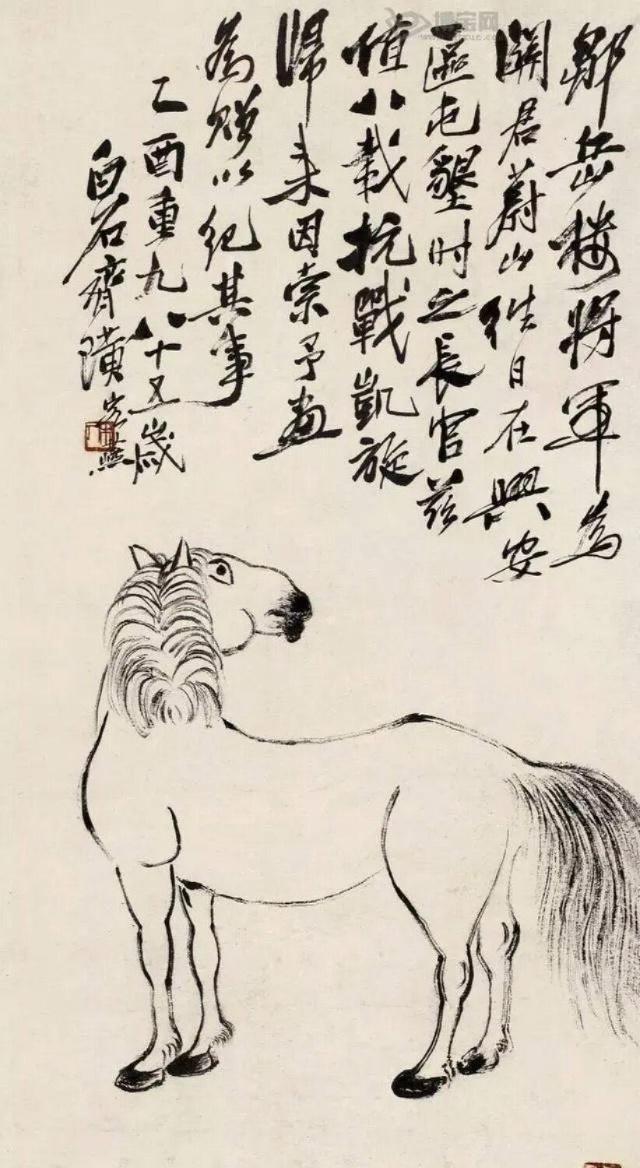 鄒岳樓將軍為
關君蔚山往日在興安
區屯墾時之長官茲
值八載抗戰凱旋
歸來因索予畫
為贈以紀其事
乙酉重九八十五歲
白石齊璜
博宝网